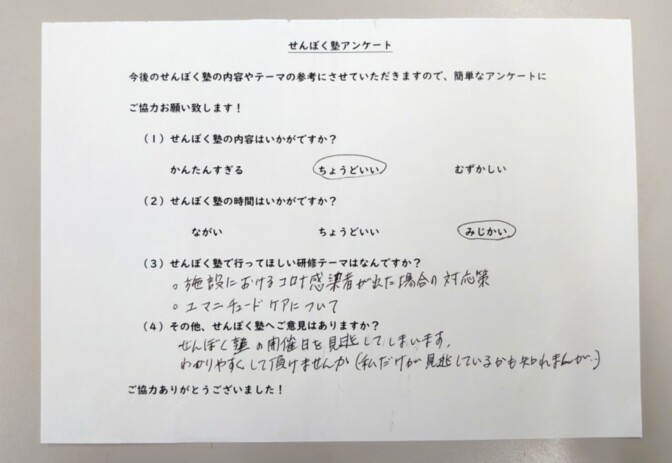 せんぼく塾アンケート
今後のせんぼく塾の内容やテーマの参考にさせていただきますので、簡単なアンケートに
ご協力お願い致します！
（１）せんぼく塾の内容はいかがですか？
かんたんすぎる　ちょうどいい　むずかしい
（２）せんぼく塾の時間はいかがですか？
ながい　ちょうどいい　みじかい
（３）せんぼく塾で行ってほしい研修テーマはなんですか？
。施設におけるコロナ感染者が出た場合の対応策
。ユマニチュードケアについて
（４）その他、せんぼく塾へご意見はありますか？
せんぼく塾の開催日を見逃してしまいます。
わかりやすくして頂けませんか（私だけが見逃しているかも知れませんが…）
ご協力ありがとうございました！